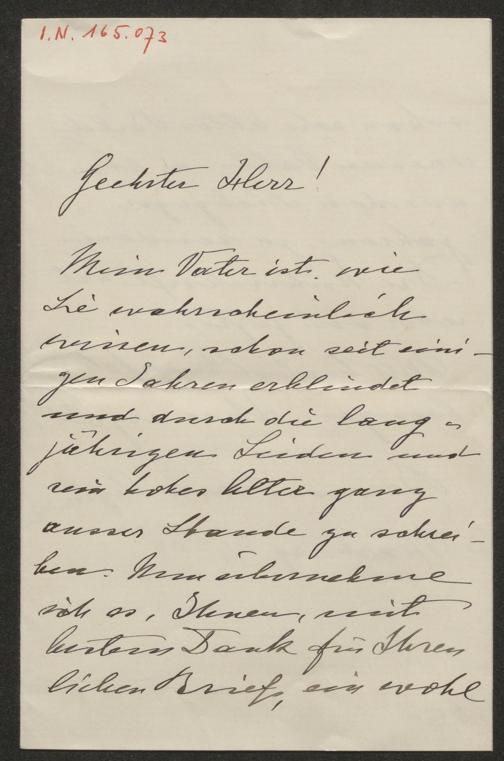 I.N. 165.073
Geehrter Herr!
Mein Vater ist, wie
Sie wahrscheinlich
wissen, schon seit eini-
gen Jahren erblindet
und durch die lang-
jährigen Leiden und
sein hohes Alter ganz
ausser Stande zu schrei-
ben. Nun übernehme
ich es, Ihnen, mit
bestem Dank für Ihren
lieben Brief, ein wohl